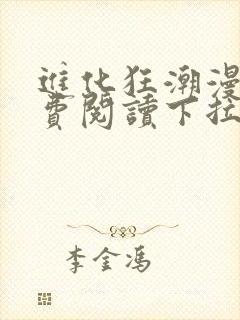 進化狂潮漫
費閱讀下拉
李金馮